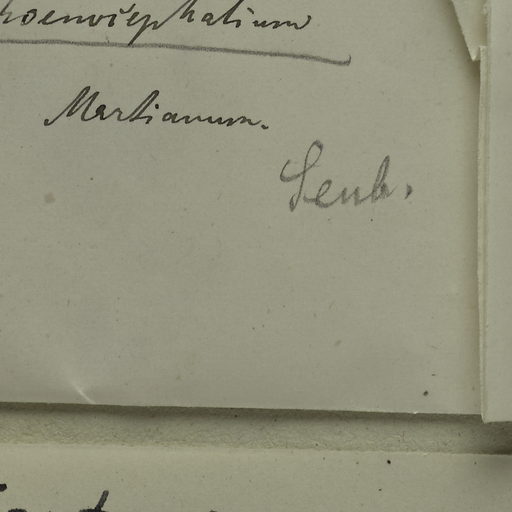 hoenocephalium
Martianum.
Seub.